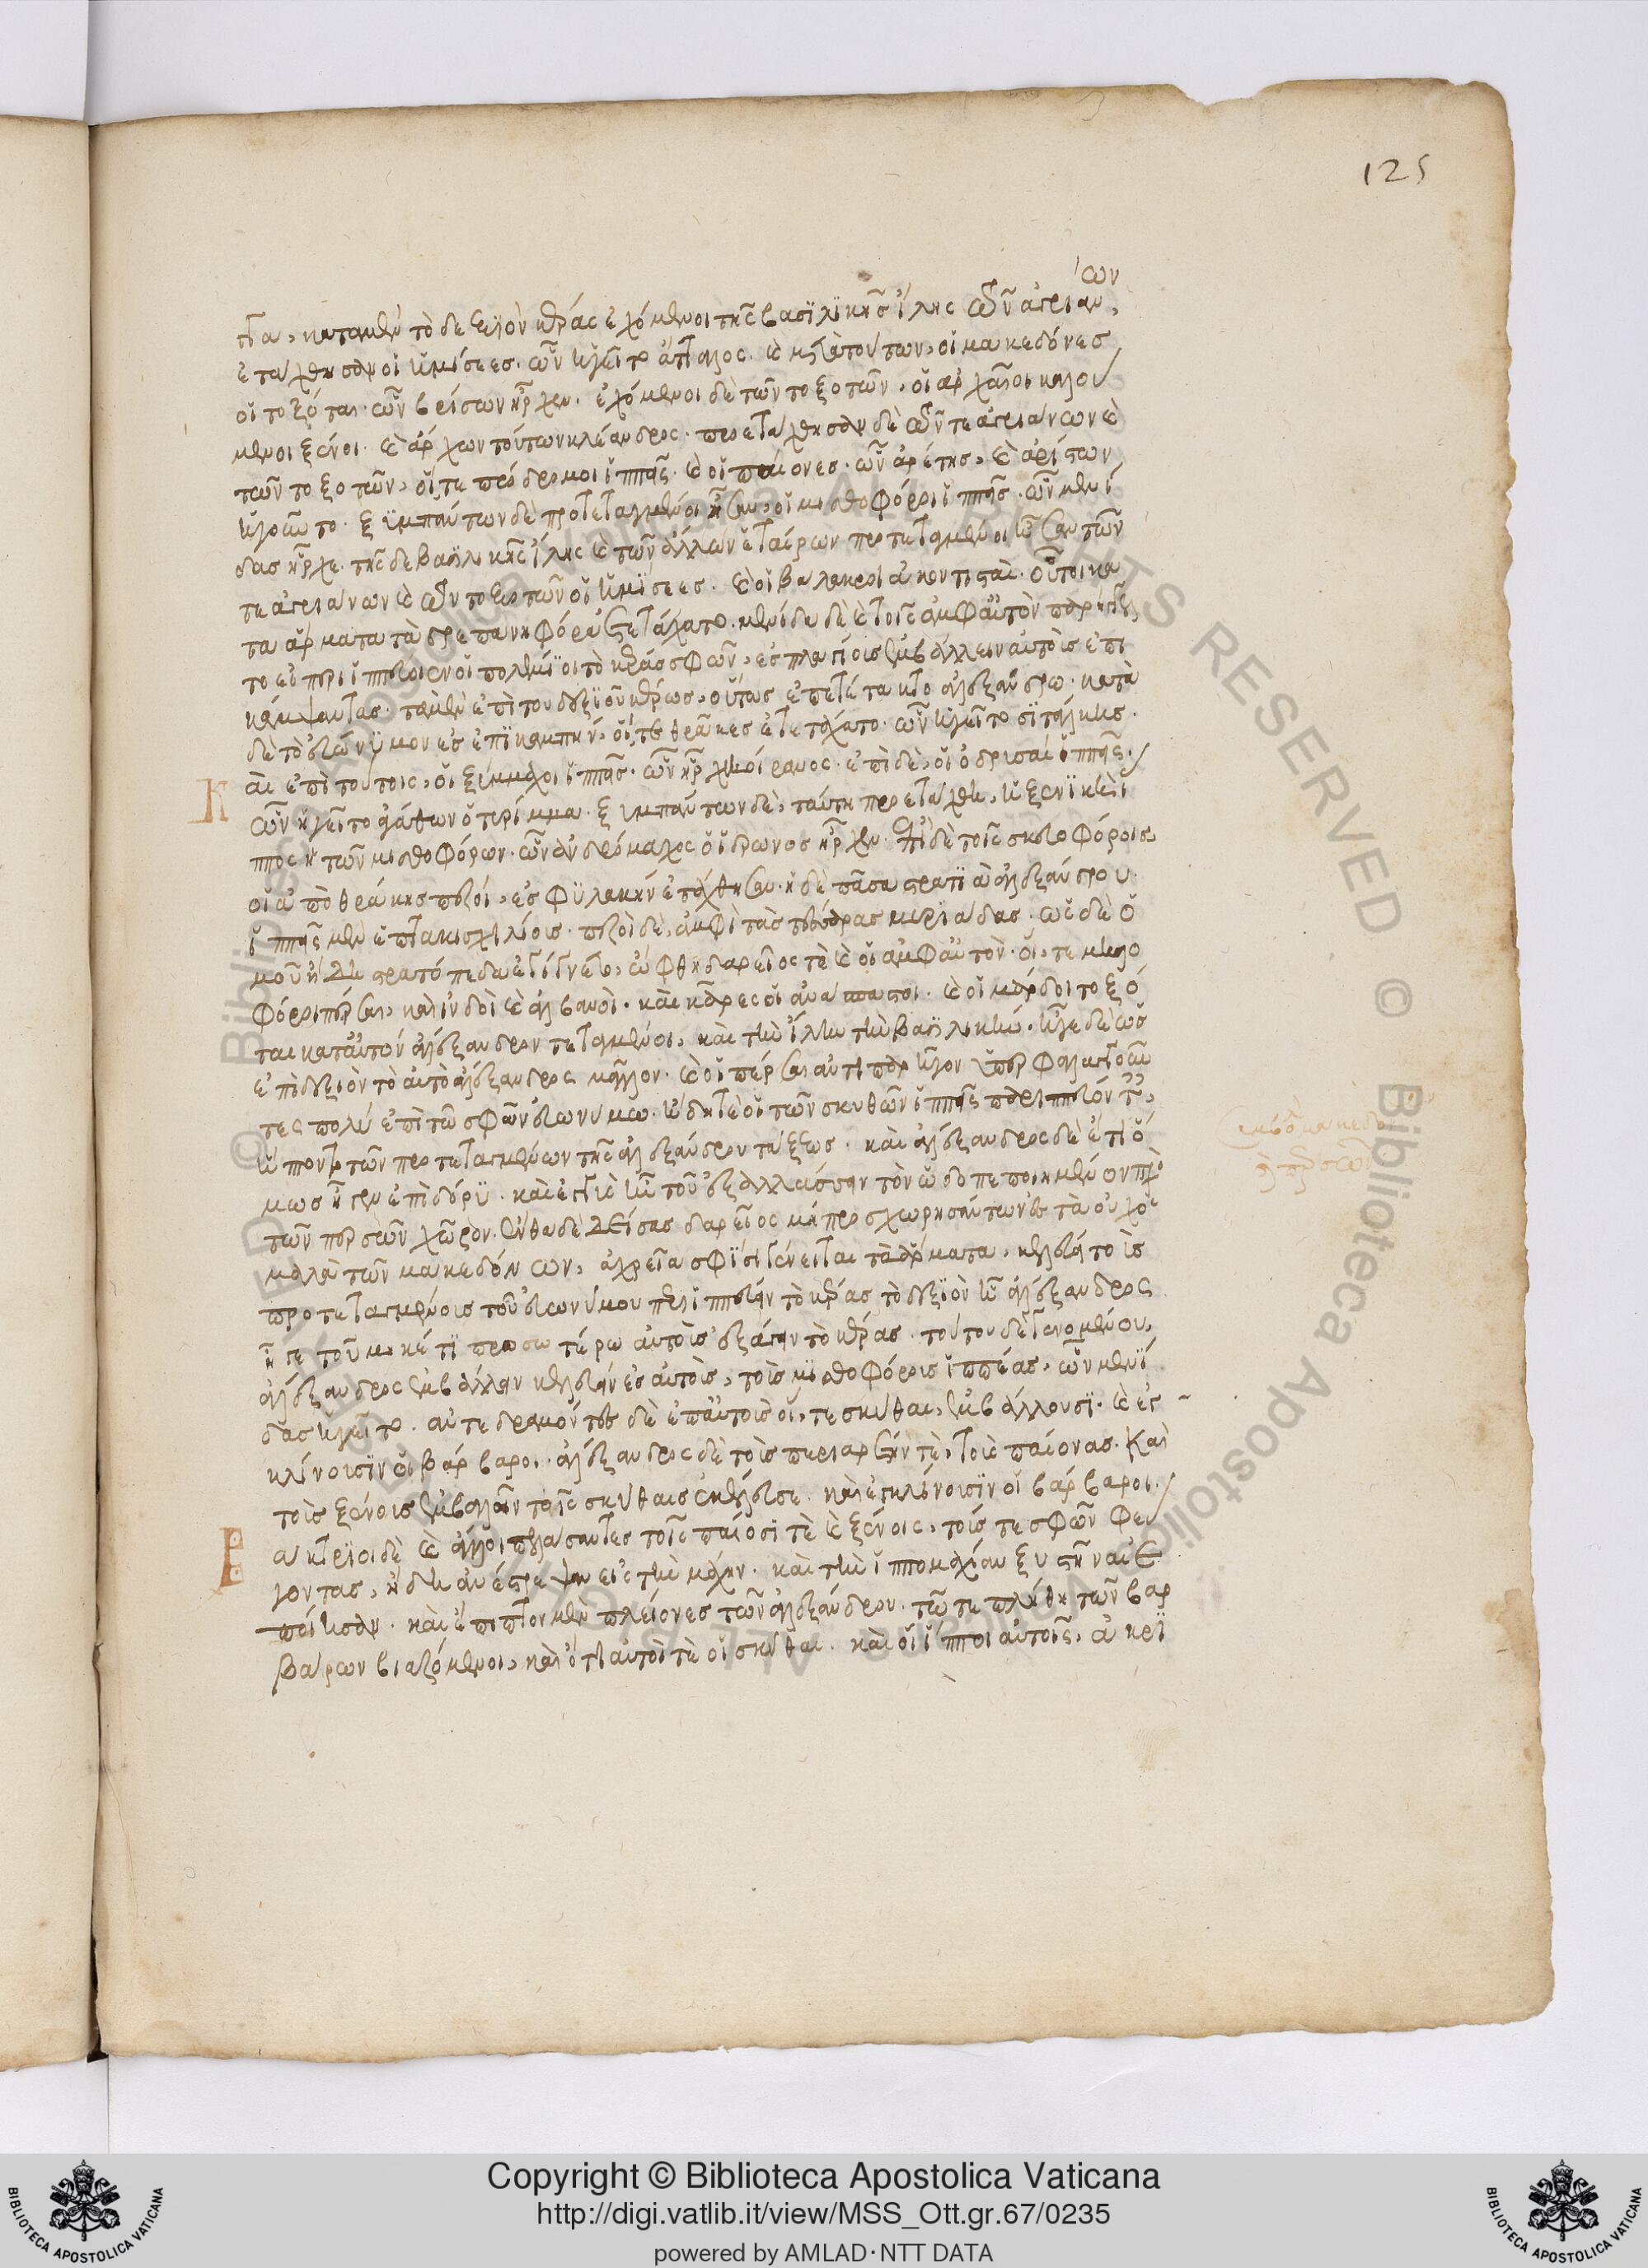 125
των
τα, κατα μὲν τὸ δεξιὸν κέρας ἐχόμενοι τῆς βασιλικῆς ἴλης τῶν ἀγριαν,
ἐτάχθησαν οἱ ἡμίσεες. ὧν ἡγεῖτο ἄτταλος. καὶ μετὰ τούτων, οἱ μακεδόνες
οἱ τοξόται. ὧν βρίσων ἦρχεν. ἐχόμενοι δὲ τῶν τοξοτῶν, οἱ ἀρχαῖοι καλού
μενοι ξένοι. καὶ ἄρχων τούτων κλέανδρος. προετάχθησαν δὲ τῶν τε ἀγριάνων καὶ
τῶν τοξοτῶν, οἵ, τε πρόδρομοι ἱππῆς. καὶ οἱ παίονες. ὧν ἀρέτης, καὶ ἀρίστων
ἡγοῦντο. ξυμπάντων δὲ προτεταγμένοι ἦσαν, οἱ μισθοφόροι ἱππῆς. ὧν μενί
δας ἦρχε. τῆς δὲ βασιλικῆς ἴλης καὶ τῶν ἄλλων ἑταίρων προτεταγμένοι ἦσαν τῶν
τε ἀγριάνων καὶ τῶν τοξοτῶν οἱ ἡμίσεες. καὶ οἱ βαλακροῦ ἀκοντισταί. οὗτοι κα
τα ἅρματα τὰ δρεπανηφόρα ἐτετάχατο. μενίδα δὲ καὶ τοῖς ἀμφ αὐτὸν παρήγγελ
το εἰ περιιππεύοιεν οἱ πολέμιοι τὸ κέρας σφῶν, ἐς πλαγίους ἐμβάλλειν αὐτοὺς ἐπι
κάμψαντας. τὰ μὲν ἐπὶ του δεξιοῦ κέρως, οὕτως ἐπετέτακτο ἀλεξάνδρω. κατὰ
δὲ τὸ εὐώνυμον ἐς ἐπικαμπήν, οἵ, τε θρᾶκες ἐτετάχατο. ὧν ἡγεῖτο σιτάλκης.
καὶ ἐπὶ τούτοις, οἱ ξύμμαχοι ἱππῆς. ὧν ἦρχε κοίρανος. ἐπὶ δὲ, οἱ ὀδρύσαι ἱππῆς.
ὧν ἡγεῖτο ἀγάθων ὁ τυρίμμα. ξυμπάντων δὲ, ταύτη προετάχθη, ἡ ξενικὴ ἵ
ππος ἡ τῶν μισθοφόρων. ὧν ἀνδρόμαχος ὁ ἱέρωνος ἦρχεν. ἐπὶ δὲ τοῖς σκευοφόροις,
οἱ ἀπὸ θράκης πεζοί, ἐς φυλακὴν ἐτάχθησαν. ἡ δὲ πᾶσα στρατιὰ ἀλεξάνδρου.
ἱππῆς μὲν ἐς ἑπτακισχιλίους. πεζοὶ δὲ, ἀμφὶ τὰς τέσσαρας μυριάδας. ὡς δὲ ὁ
μοῦ ἤδη στρατόπεδα ἐγίγνετο, ὤφθη δαρεῖος τὲ καὶ οἱ ἀμφ αὐτόν. οἵ, τε μηλο
φόροι πέρσαι, καὶ ἰνδοὶ καὶ ἀλβανοὶ. καὶ κᾶρες οἱ ἀνάσπαστοι. καὶ οἱ μάρδοι τοξό
ται κατ αὐτὸν ἀλέξανδρον τεταγμένοι, καὶ τὴν ἴλην τὴν βασιλικήν. ἦγε δὲ ὡς
ἐπὶ δεξιὸν τὸ αὐτοῦ ἀλέξανδρος μᾶλλον. καὶ οἱ πέρσαι ἀντιπαρῆγον ὑπερφαλαγγοῦν
τες πολὺ ἐπὶ τῶ σφῶν εὐωνύμω. ἤδη τε οἱ τῶν σκυθῶν ἱππῆς παριππεύοντες,
ἥπτοντο τῶν προτεταγμένων τῆς ἀλεξάνδρου τάξεως. καὶ ἀλέξανδρος δὲ ἔτι ὅ
μως ἦγεν ἐπὶ δόρυ. καὶ ἐγγὺς ἦν τοῦ ἐξαλλάσσειν τὸν ὡδοπεποιημένον πρὸς
τῶν περσῶν χῶρον. ἔνθα δὲ δείσας δαρεῖος μὴ προχωρησάντων ἐς τὰ οὐχ ὁ
μαλὰ τῶν μακεδόνων, ἀχρεῖα σφίσι γένηται τὰ ἅρματα, κελεύει τοὺς
προτεταγμένους τοῦ εὐωνύμου περιιππεύειν τὸ κέρας τὸ δεξιὸν ἧ ἀλέξανδρος
ἦγε τοῦ μηκέτι προσωτέρω αὐτοὺς ἐξάγειν τὸ κέρας. τούτου δὲ γενομένου,
ἀλέξανδρος ἐμβάλλειν κελεύει ἐς αὐτοὺς, τοὺς μισθοφόρους ἱππέας, ὧν μενί
δας ἡγεῖτο. ἀντεκδραμόντες δὲ ἐπ αὐτοὺς οἵ, τε σκύθαι, ἐμβάλλουσι. καὶ ἐγ
κλίνουσιν οἱ βάρβαροι. ἀλέξανδρος δὲ τοὺς περὶ ἀρετήν τὲ, τοὺς παίονας. καὶ
τοὺς ξένους ἐμβαλεῖν τοῖς σκύθαις ἐκέλευσε. καὶ ἐγκλίνουσιν οἱ βάρβαροι.
βάκτριοι δὲ καὶ ἄλλοι πελάσαντες τοῖς παίοσί τὲ καὶ ξένοις, τούς τε σφῶν φεύ
γοντας, ἤδη ἀνέστρεψαν εἰς τὴν μάχην. καὶ τὴν ἱππομαχίαν ξυστῆναι ἐ
ποίησαν. καὶ ἔπιπτον μὲν πλείονες τῶν ἀλεξάνδρου. τῶ τε πλήθει τῶν βαρ
βάρων βιαζόμενοι, καὶ ὅτι αὐτοί τὲ οἱ σκύθαι. καὶ οἱ ἵπποι αὐτοῖς, ἀκρι
© Biblioteca Apostolica Vaticana ALL RIGHTS RESERVED
Copyright © Biblioteca Apostolica Vaticana
http://digi.vatlib.it/view/MSS_Ott.gr.67/0235
powered by AMLAD·NTT DATA
BIBLIOTECA APOSTOLICA VATICANA
BIBLIOTECA APOSTOLICA VATICANA